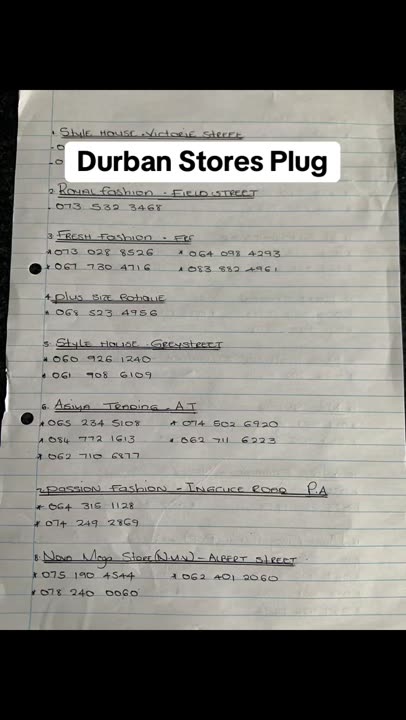 1. Style House - Victorie Street
Durban Stores Plug
2. Royal Fashion - Field Street
- 073 532 3468
3. Fresh Fashion - FF
* 073 028 8526 * 064 098 4293
* 067 730 4716 * 083 882 4961
4. Plus Size Botique
* 068 523 4956
5. Style House - Greystreet
* 060 926 1240
* 061 908 6109
6. Asiya Trading - AT
* 065 234 5108 * 074 502 6920
* 084 772 1613 * 062 711 6223
* 062 710 6877
7. Passion Fashion - Ingcuce Road P.A
* 064 315 1128
* 074 249 2869
8. Novo Mega Store (NMX) - Albert Street
* 075 190 4544 * 062 401 2060
* 078 240 0060